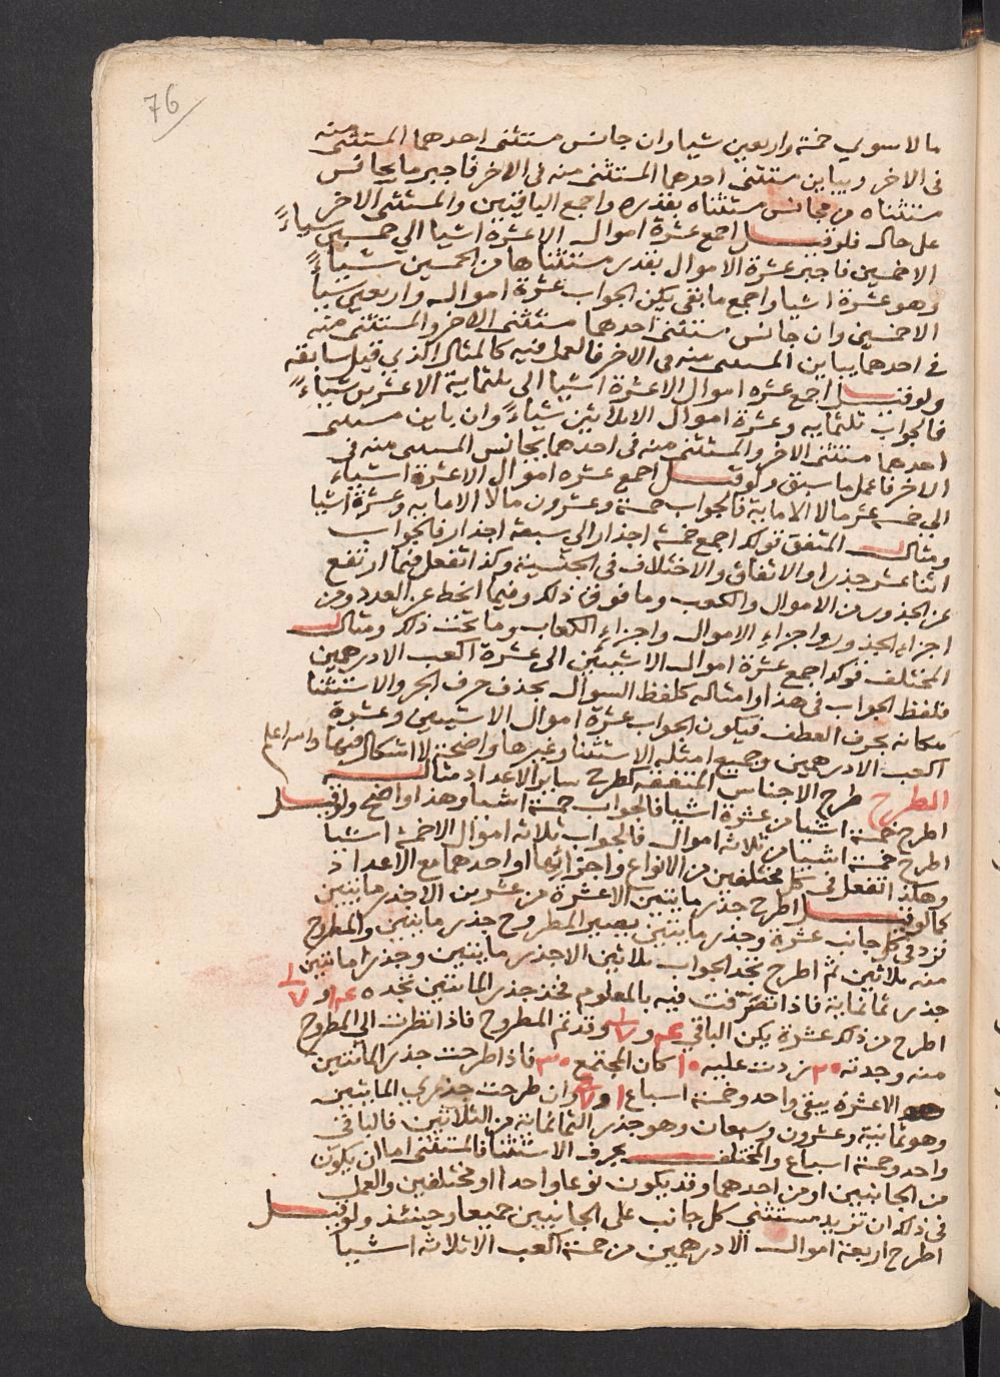 76
مالا سوي خمسة واربعين شيا وان جانس مستثنى احدهما المستثنى منه
فى الاخر ويباين مستثنى احدهما المستثنى منه فى الاخر فاجبر ما يجانس
مستثناه من مجانس مستثناه بقدره واجمع الباقيين والمستثنى الاخر
على حاله فلو قيل اجمع عشرة اموال الا عشرة اشيا الي خمسين شياءً
الا خمسين فاجبر عشرة الاموال بقدر مستثناها من الخمسين شياءً
وهو عشرة اشيا واجمع ما بقى يكن الجواب عشرة اموال واربعين شياً
الا خمسين وان جانس مستثنى احدهما مستثنى الاخر والمستثنى منه
فى احدهما يباين المستثنى منه فى الاخر فالعمل فيه كالمثال الذي قبل سابقه
ولو قيل اجمع عشره اموال الا عشرة اشيا الى ثلثماية الا عشرين شياءً
فالجواب ثلثمايه وعشرة اموال الا ثلاثين شياءً وان باين مستثنى
احدهما مستثنى الاخر والمستثنى منه فى احدهما يجانس المستثنى منه فى
الاخر فاعمل ما سبق ولو قيل اجمع عشره اموال الا عشرة اشياء
الي خمسة عشر مالا الا ماية فالجواب خمسة وعشرون مالا الا مايه وعشرة اشيا
ومثال المتفق قولك اجمع خمسة اجذار الي سبعة اجذار فالجواب
اثنا عشر جذرا والاتفاق والاختلاف فى الجنسية وكذا تفعل فيما ارتفع
عن الجذور من الاموال والكعوب وما فوق ذلك وفيما انحط عن العدد من
اجزاء الجذور واجزاء الاموال واجزاء الكعاب وما تحت ذلك ومثال
المختلف قولك اجمع عشرة اموال الا شيئين الى عشرة اكعب الا درهمين
فلفظ الجواب فى هذا وامثاله كلفظ السوال بحذف حرف الجر والاستثنا
مكانه بحرف العطف فيكون الجواب عشرة اموال الا شيئين وعشرة
اكعب الا درهمين وجميع امثلة الاستثنا وغيرها واضحة لا اشكال فيها والله اعلم
الطرح طرح الاجناس المتفقه كطرح ساير الاعداد مثاله
اطرح خمسة اشيا من عشرة اشيا فالجواب خمسة اشيا وهذا واضح ولو قيل
اطرح خمسة اشيا من ثلاثة اموال فالجواب ثلاثه اموال الا خمسة اشيا
وهكذا تفعل فى كل مختلفين من الانواع واجزائها او احدهما مع الاعداد
كما لو قيل اطرح جذر مايتين الا عشرة من عشرين الا جذر مايتين
نزد فى كل جانب عشرة وجذر مايتين يصير المطروح جذر مايتين والمطروح
منه ثلاثين ثم اطرح تجد الجواب ثلاثين الا جذر مايتين وجذر مايتين
جذر ثمانماية فاذا تصرفت فيه بالمعلوم فخذ جذر المايتين تجده ١٤ و ١/٧
اطرح من ذلك عشرة يكن الباقي ٤ و ١/٧ وقد تم المطروح فاذا نظرت الي المطروح
منه وجدته ٢٠ زدت عليه ١٠ كان المجتمع ٣٠ فاذا طرحت جذر المايتين
الا عشرة يبقى واحد وخمسة اسباع ١ و ٥/٧ وان طرحت جذري المايتين
وهو ثمانية وعشرون وسبعان وهو جذر الثمانماية من الثلاثين فالباقي
واحد وخمسة اسباع والمختلف بحرف الاستثنا فالمستثنى اما ان يكون
من الجانبين او من احدهما وقد يكون نوعا واحدا او مختلفين والعمل
فى ذلك ان تزيد مستثنى كل جانب على الجانبين جميعا وحينئذ ولو قيل
اطرح اربعة اموال الا درهمين من خمسة اكعب الا ثلاثة اشيا